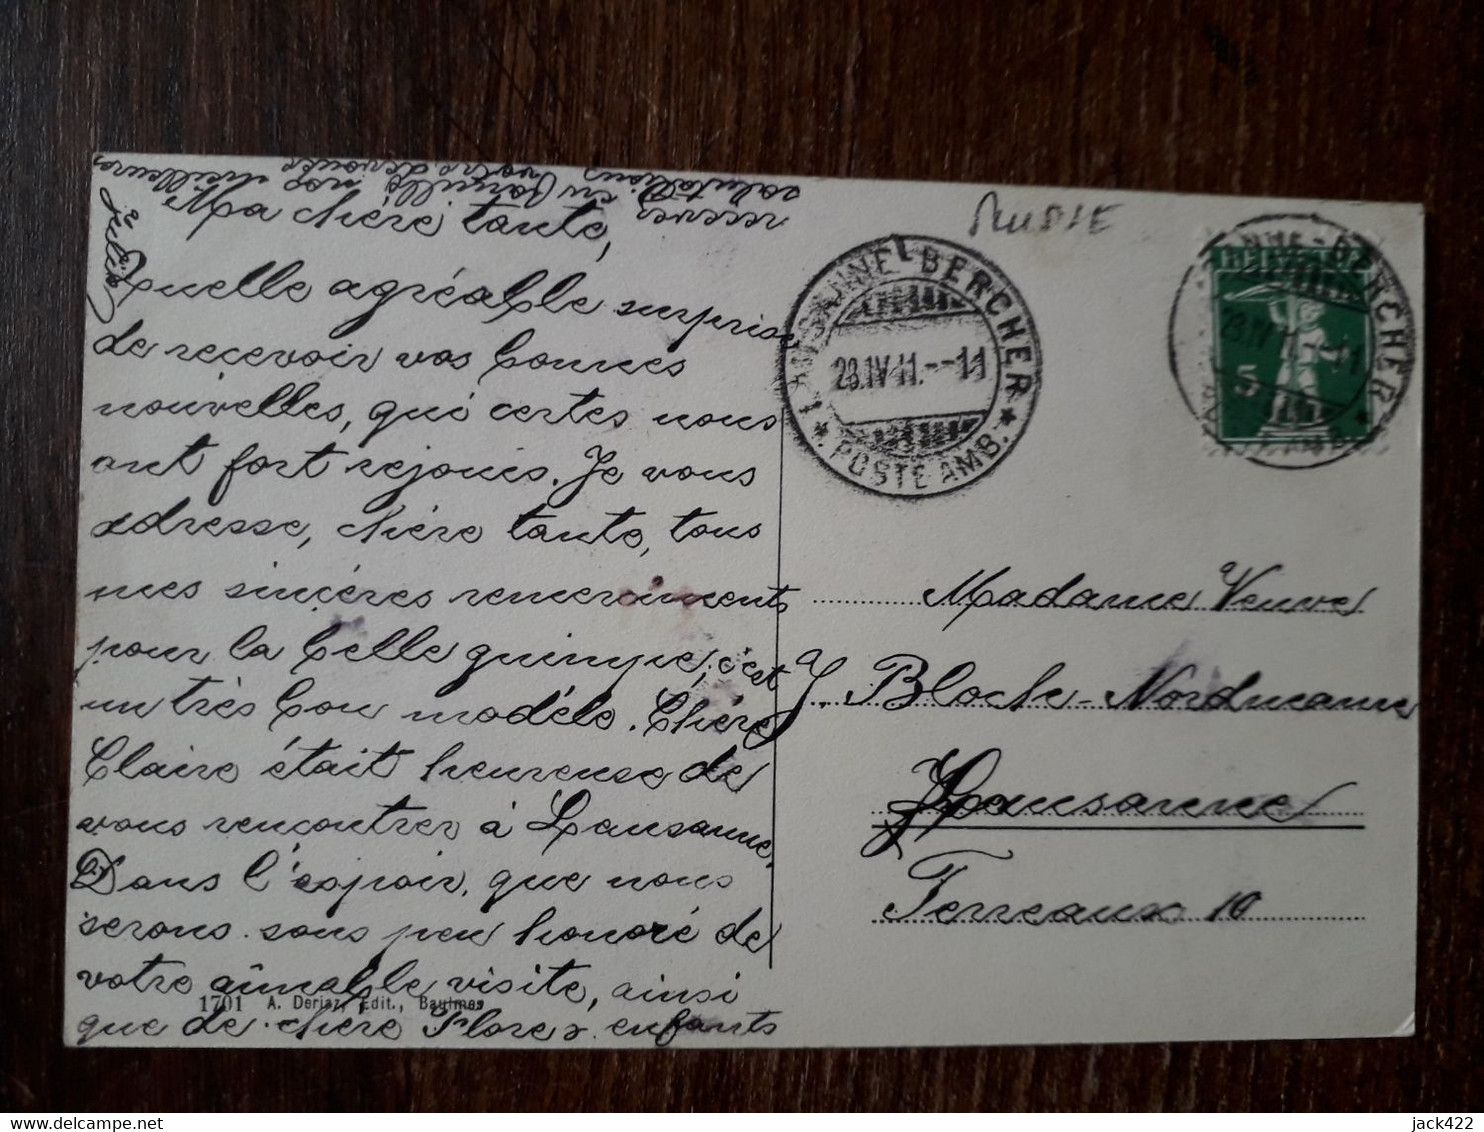 Ma chère tante,
Quelle agréable surprise
de recevoir vos bonnes
nouvelles, qui certes nous
ont fort rejouis. Je vous
adresse, chère tante, tous
mes sincéres remerciments
pour la belle guimpe, c'est
un très bon modèle. Chère
Claire était heureuse de
vous rencontrer à Lausanne.
Dans l'espoir, que nous
serons sous peu honoré de
votre aimable visite, ainsi
que de chère Flore & enfants
recevez en famille nos meilleures
salutations
votre dévouée
Juliette
1701 A. Deriaz, Edit., Baulmes
LAUSANNE-BERCHER
28.IV.11.--11
1 * POSTE AMB. *
HELVETIA
5
LAUSANNE-BERCHER
28.IV.11.--11
Madame Veuve
J. Bloch-Nordmann
Lausanne
Terreaux 10
jack422